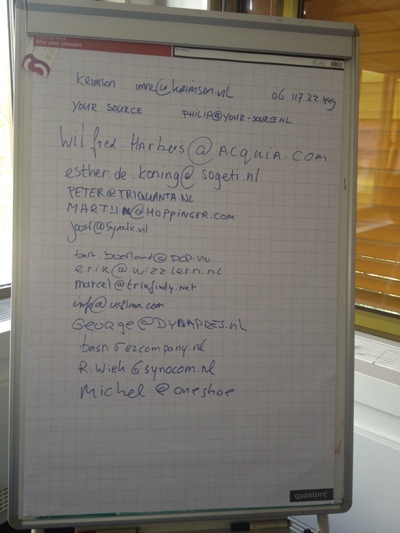 KRIMSON imre@krimson.nl 06 117 22 449
YOUR SOURCE PHILIP@YOUR-SOURCE.NL
Wilfred.Harbers@ACQUIA.COM
esther.de.koning@sogeti.nl
PETER@TRIQUANTA.NL
MARTIJN@HOPPINGER.COM
joost@synetic.nl
erik@wizzlern.nl
marcel@trinfinity.net
GEORGE@DYNAPRES.nl
bash@ezcompany.nl
R.Wieh@synocom.nl
Michel@oneshoe
quantore